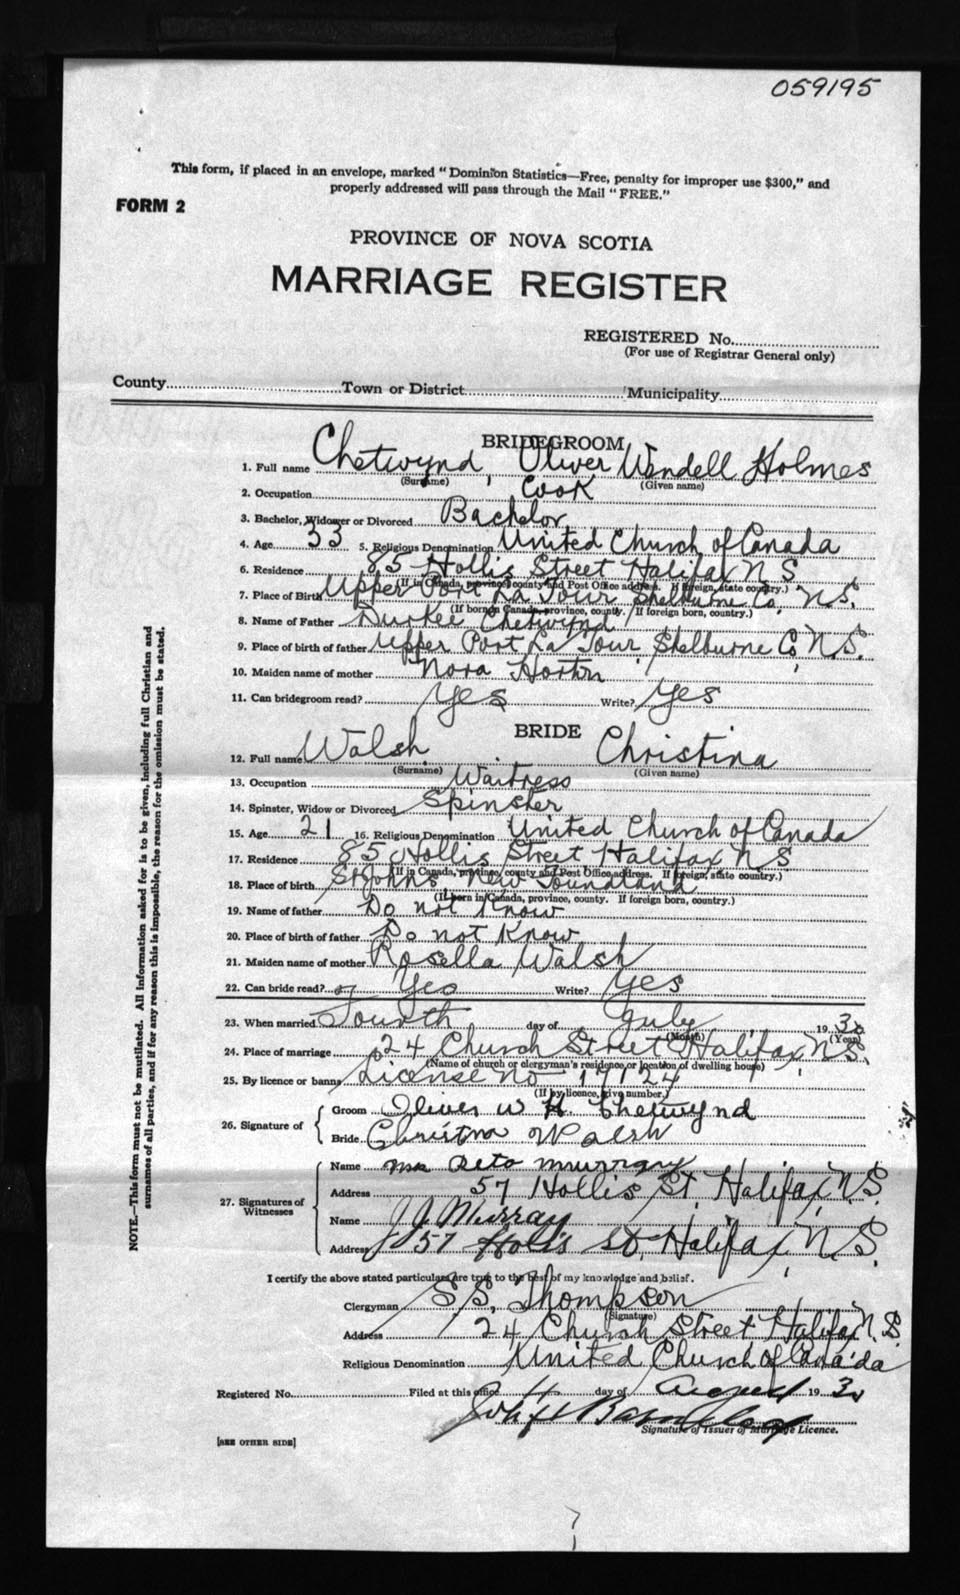 059195
This form, if placed in an envelope, marked "Dominion Statistics—Free, penalty for improper use $300," and
properly addressed will pass through the Mail "FREE."
FORM 2
PROVINCE OF NOVA SCOTIA
MARRIAGE REGISTER
REGISTERED No.
(For use of Registrar General only)
County Town or District Municipality
BRIDEGROOM
1. Full name Chetwynd, Oliver Wendell Holmes
(Surname) (Given name)
2. Occupation Cook
3. Bachelor, Widower or Divorced Bachelor
4. Age 33 5. Religious Denomination United Church of Canada
6. Residence 85 Hollis Street Halifax N S
(If in Canada, province, county and Post Office address. If foreign, state country.)
7. Place of Birth Upper Port La Tour Shelburne Co. N.S.
(If born in Canada, province, county. If foreign born, country.)
8. Name of Father Durkee Chetwynd
9. Place of birth of father Upper Port La Tour Shelburne Co, N.S.
10. Maiden name of mother Nora
11. Can bridegroom read? Yes Write? Yes
BRIDE
12. Full name Walsh Christina
(Surname) (Given name)
13. Occupation Waitress
14. Spinster, Widow or Divorced Spinster
15. Age 21 16. Religious Denomination United Church of Canada
17. Residence 85 Hollis Street Halifax N S
(If in Canada, province, county and Post Office address. If foreign, state country.)
18. Place of birth St Johns New Foundland
(If born in Canada, province, county. If foreign born, country.)
19. Name of father Do not Know
20. Place of birth of father Do not Know
21. Maiden name of mother Rosella Walsh
22. Can bride read? Yes Write? Yes
23. When married Fourth day of July 1930
(Month) (Year)
24. Place of marriage 24 Church Street Halifax, N.S.
(Name of church or clergyman's residence or location of dwelling house)
25. By licence or banns License No 17124
(If by licence, give number.)
26. Signature of
Groom Oliver W H Chetwynd
Bride Christina Walsh
27. Signatures of Witnesses
Name Mrs Murray
Address 57 Hollis St. Halifax, N.S.
Name J J Murray
Address 57 Hollis St, Halifax, N.S.
I certify the above stated particulars are true to the best of my knowledge and belief.
Clergyman S S, Thompson
(Signature)
Address 24 Church Street Halifax N.S.
Religious Denomination United Church of Canada
Registered No. Filed at this office 4 day of August 1930
Signature of Issuer of Marriage Licence.
[SEE OTHER SIDE]
NOTE.—This form must not be mutilated. All information asked for is to be given, including full Christian and
surnames of all parties, and if for any reason this is impossible, the reason for the omission must be stated.